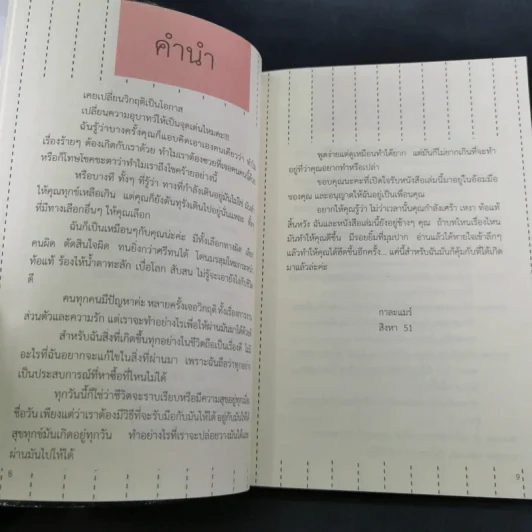 คำนำ
เคยเปลี่ยนวิกฤติเป็นโอกาส
เปลี่ยนความอุบาทว์ให้เป็นจุดเด่นไหมคะ!!!
ฉันรู้ว่าบางครั้งคุณก็แอบคิดเอาเองคนเดียวว่า ทำไม
เรื่องร้ายๆ ต้องเกิดกับเราด้วย ทำไมเราต้องซวยที่เจอคนแบบนี้
หรือก็โทษโชคชะตาว่าทำไมเราถึงโชคร้ายอย่างนี้
หรือบางที ทั้งๆ ที่รู้ว่า ทางที่กำลังเดินอยู่มันไม่ใช่
ให้คุณทุกข์เหลือเกิน แต่คุณก็ยังดันทุรังเดินไปอยู่นั่นแหละ
ที่มีทางเลือกอื่นๆ ให้คุณเลือก
ฉันก็เป็นเหมือนๆกับคุณน่ะค่ะ มีทั้งเลือกทางผิด
คนผิด ตัดสินใจผิด ทนยิ่งกว่าควีทนได้ โดนมรสุม
ท้อแท้ ร้องไห้น้ำตาทะลัก เบื่อโลก สับสน ไม่รู้จะเอายังไงกับชีวิต
ดี
คนทุกคนมีปัญหาค่ะ หลายครั้งเจอวิกฤติ ทั้งเรื่อง
ส่วนตัวและความรัก แต่เราจะทำอย่างไรเพื่อให้ผ่านมันมาได้ด้วยดี
สำหรับฉันสิ่งที่เกิดขึ้นทุกอย่างในชีวิตถือเป็นเรื่องดี ไม่มี
อะไรที่ฉันอยากจะแก้ไขในสิ่งที่ผ่านมา เพราะฉันถือว่าทุกอย่าง
เป็นประสบการณ์ที่หาซื้อที่ไหนไม่ได้
ทุกวันนี้ก็ใช่ว่าชีวิตจะราบเรียบหรือมีความสุขอยู่ทุกเมื่อ
เชื่อวัน เพียงแต่ว่าเราต้องมีวิธีที่จะรับมือกับมันให้ได้ อยู่กับมันให้ได้
สุขทุกข์มันเกิดอยู่ทุกวัน ทำอย่างไรที่เราจะปล่อยวางมันได้และ
ผ่านมันไปให้ได้
8
พูดง่ายแต่ดูเหมือนทำได้ยาก แต่มันก็ไม่ยากเกินที่จะทำ
อยู่ที่ว่าคุณอยากทำหรือเปล่า
ขอบคุณนะคะที่เปิดใจรับหนังสือเล่มนี้มาอยู่ในอ้อมมือ
ของคุณ และอนุญาตให้ฉันอยู่เป็นเพื่อนคุณ
อยากให้คุณรู้ว่า ไม่ว่าเวลานั้นคุณกำลังเศร้า เหงา ท้อแท้
สิ้นหวัง ฉันและหนังสือเล่มนี้ยังอยู่ข้างๆ คุณ ถ้าบทไหนเรื่องไหน
มันทำให้คุณดีขึ้น มีรอยยิ้มที่มุมปาก อ่านแล้วได้หายใจเข้าลึกๆ
แล้วทำให้คุณได้ฮึดขึ้นอีกครั้ง... แค่นี้สำหรับฉันมันก็คุ้มกับที่ได้เกิด
มาแล้วล่ะค่ะ
กาละแมร์
สิงหา 51
9